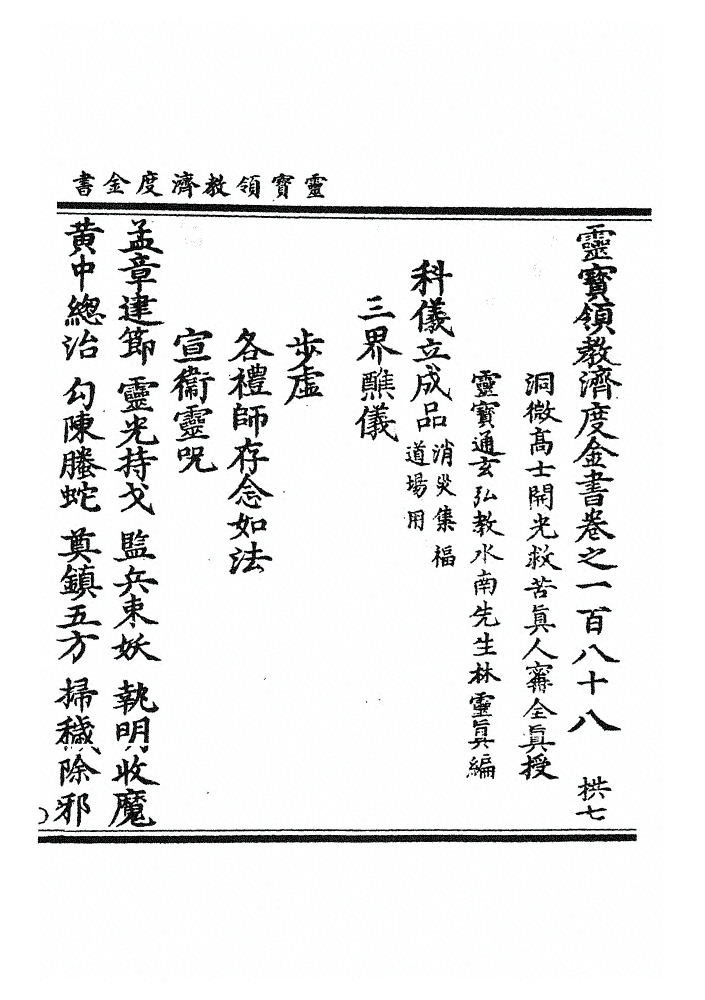 靈寶領教濟度金書
靈寶領教濟度金書卷之一百八十八　栱七
洞微高士開光救苦眞人甯全眞授
靈寶通玄弘教水南先生林靈眞編
科儀立成品 消災集福
道場用
三界醮儀
步虛
各禮師存念如法
宣衞靈咒
孟章建節　靈光持戈　監兵束妖　執明收魔
黃中總治　勾陳螣蛇　奠鎮五方　掃穢除邪